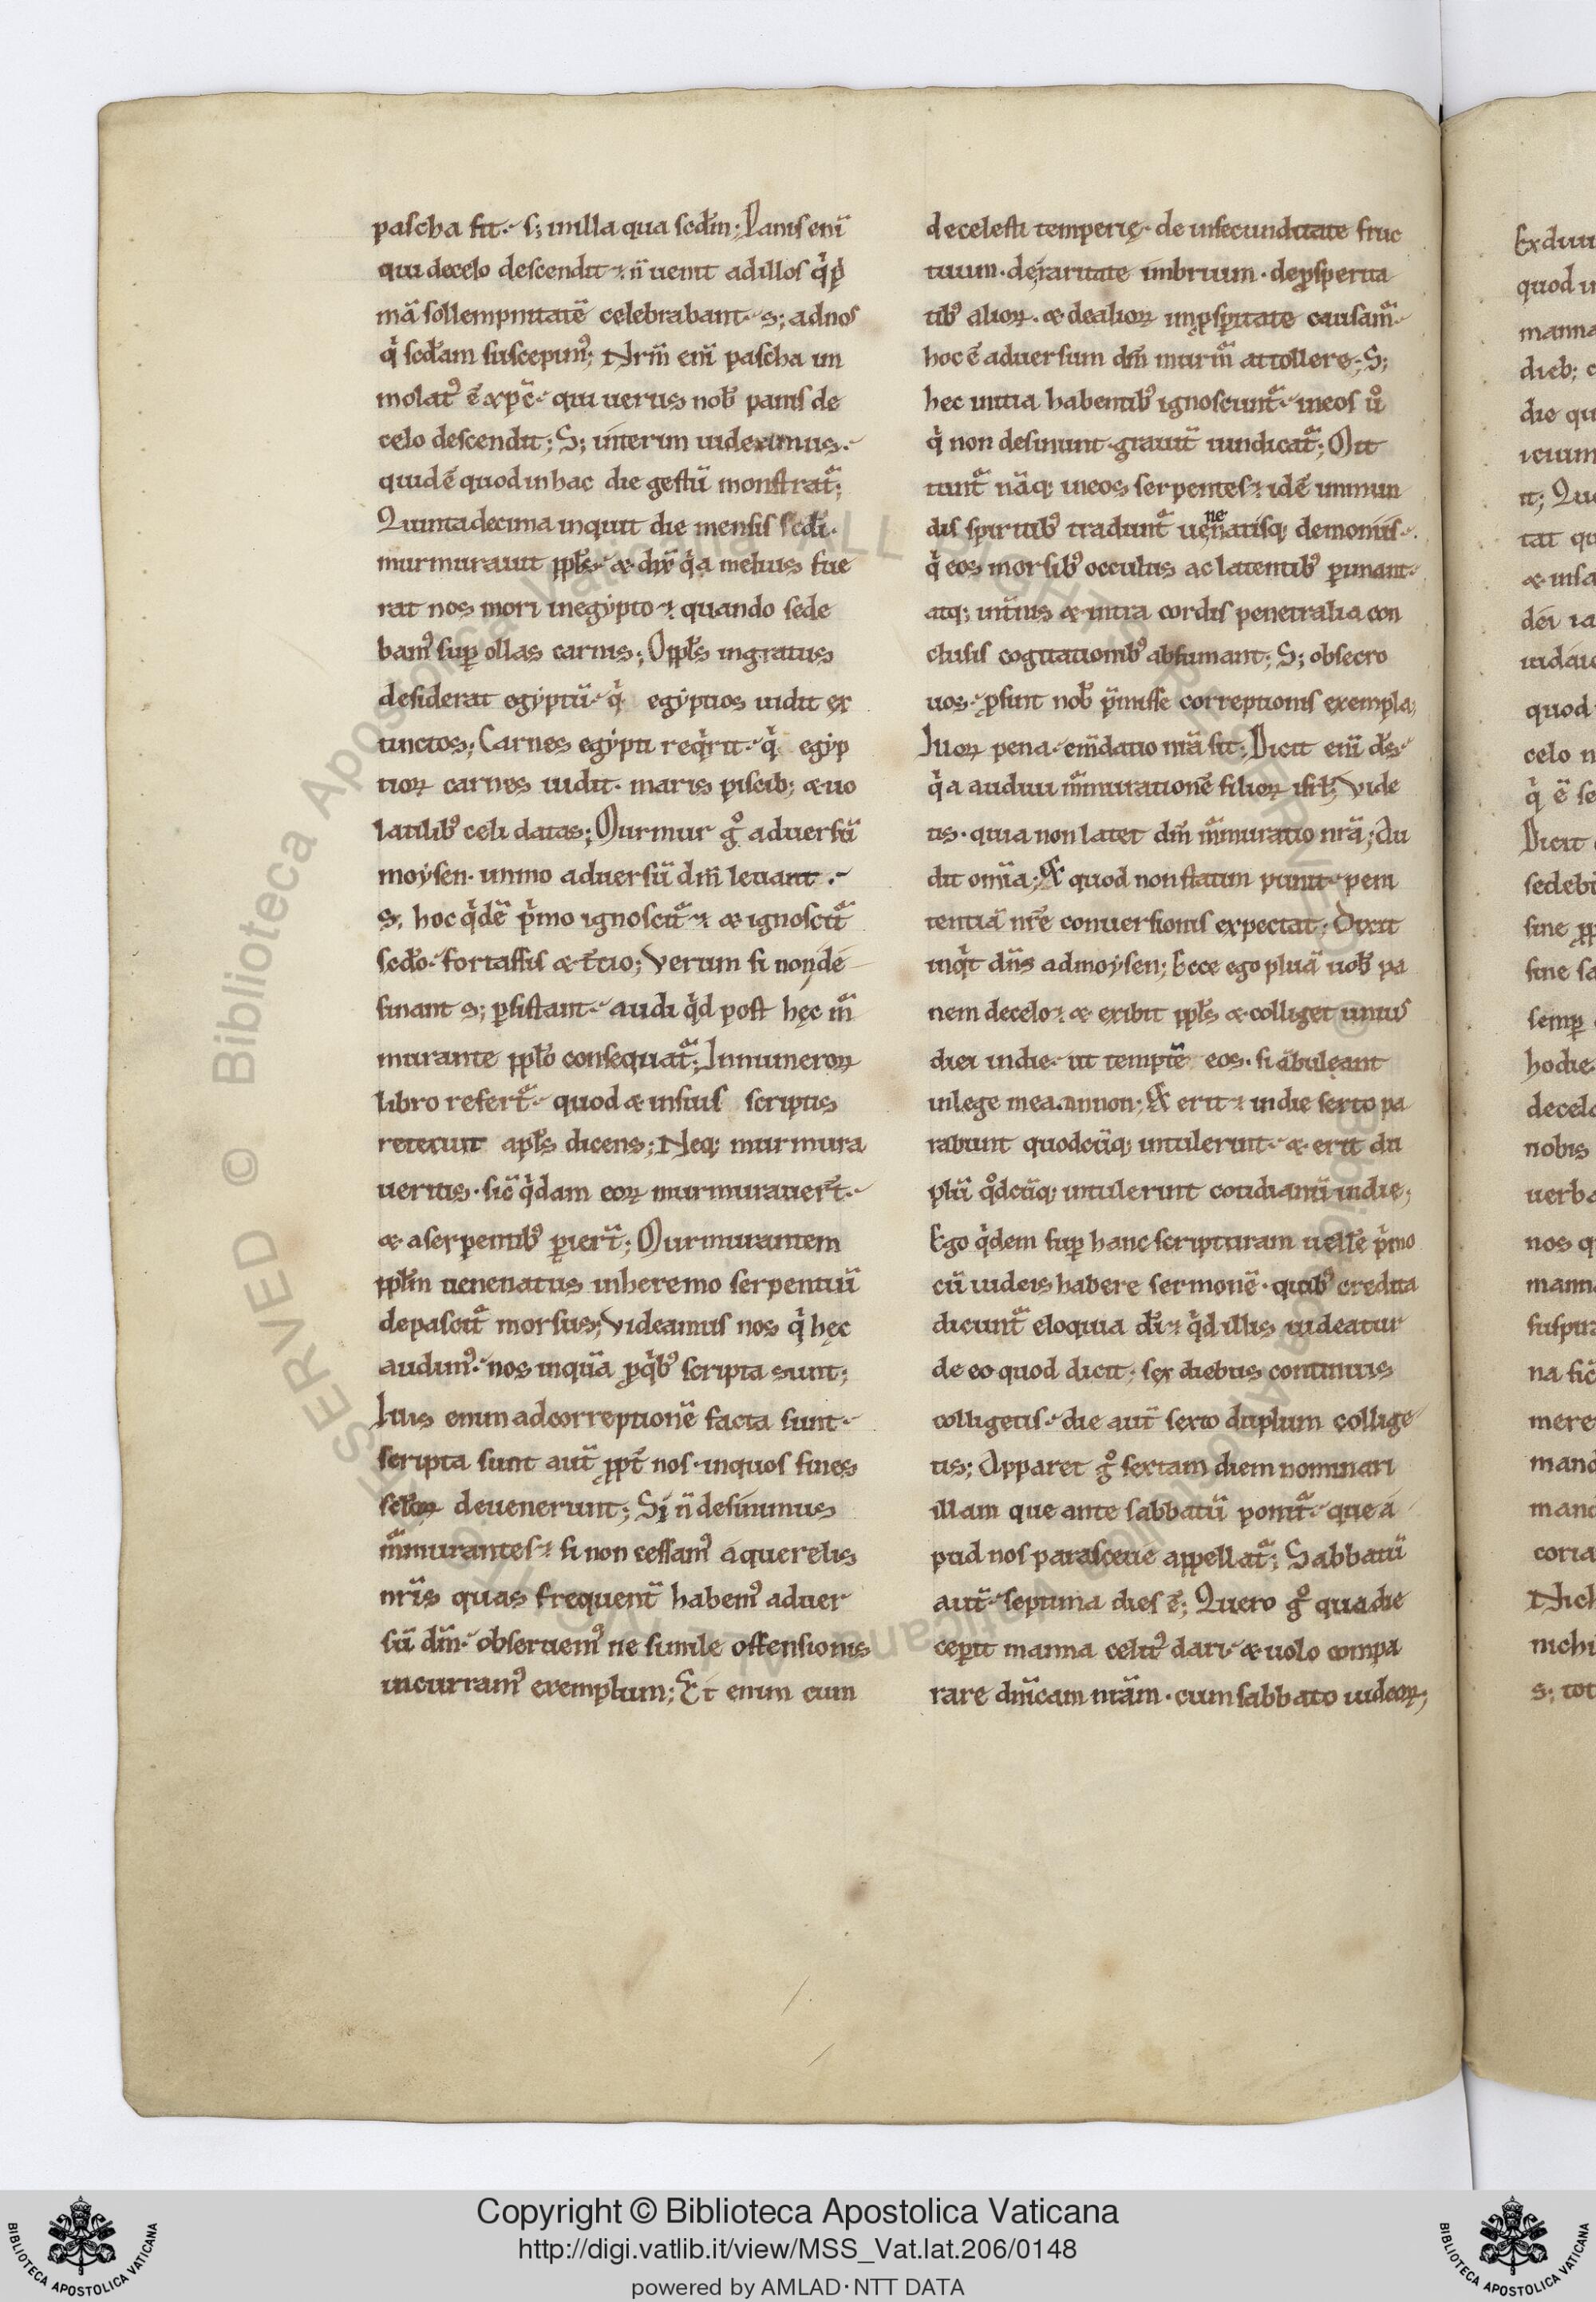 pascha fit. s; in illa qua scd̄m; Panis enī
qui de celo descendit n̄ uenit ad illos q̇ p̄
mā sollempnitatē celebrabant. s; ad nos
q̇ scd̄am suscepim᷒; Nrm̄ enī pascha im
molat᷒ ē xp̄c. qui uerus nob̄ panis de
celo descendit; S; interim uideamus.
quid ē quod in hac die gestū monstrat᷑;
Quintadecima inquit die mensis scd̄i.
murmurauit ppl̄s. & dix̄ q̇a melius fue
rat nos mori in egypto quando sede
bam᷒ sup̄ ollas carnis; O ppl̄s ingratus
desiderat egyptū. q̇ egyptios uidit ex
tinctos; Carnes egypti req̇rit. q̇ egyp
tioꝝ carnes uidit. maris piscib; & uo
latilib᷒ celi datas; Murmur g̊ aduersū
moysen. immo aduersū dm̄ leuant.
S; hoc q̇dē ṗmo ignoscit᷑ & ignoscit᷑
scd̄o. fortassis & t̄cio; Verum si non de
sinant s; ꝑsistant. audi q̇d post hęc m᷑
murante ppl̄o consequat᷑; In numeroꝝ
libro refert᷑. quod & in suis scriptis
retexuit apl̄s dicens; Neq; murmura
ueritis. sic̄ q̇dam eoꝝ murmurauer̄t.
& a serpentib᷒ ꝑier̄t; Murmurantem
ppl̄m uenenatus in heremo serpentiū
depascit᷑ morsus; Videamus nos q̇ hęc
audim᷒. nos inquā ꝓ q̇b᷒ scripta sunt;
Illis enim ad correptionē facta sunt.
scripta sunt aut̄ ppt̄ nos. in quos fines
scl̄oꝝ deuenerunt; Si n̄ desinimus
m᷑murantes si non cessam᷒ a querelis
nr̄is quas frequent̄ habem᷒ aduer
sū dm̄. obseruem᷒ ne simile offensionis
incurram᷒ exemplum; Et enim cum
de celesti temperię. de infecunditate fruc
tuum. de raritate imbrium. de ꝓsperita
tib᷒ alioꝝ. & de alioꝝ inꝓsꝑitate causam᷑.
hoc ē aduersum dm̄ murm᷑ attollere; S;
hec initia habentib᷒ ignoscunt᷑. in eos ů
q̇ non desinunt. grauit̄ uindicat᷑; Mit
tunt᷑ nāq; in eos serpentes idē inmun
dis spiritib᷒ tradunt᷑ uenatisq; demoniis.
ne
q̇ eos morsib᷒ occultis ac latentib᷒ ꝑimant.
atq; int̄ius & intra cordis penetralia con
clusis cogitationib᷒ absumant; S; obsecro
uos. ꝓsint nob̄ p̄misse correptionis exempla;
Illoꝝ pena. em̄datio nr̄a sit; Dicit enī ds̄.
q̇a audiui m᷑murationē filioꝝ isrl̄; Vide
tis. quia non latet dm̄ m᷑muratio nr̄a; Au
dit om̄ia; & quod non statim punit. peni
tentiā nr̄e conuersionis expectat; Dixit
inq̇t dn̄s ad moysen; Ecce ego pluā uob̄ pa
nem de celo & exibit ppl̄s & colliget unius
diei in die. ut temptē eos. si ābuleant
in lege mea. an non; & erit in die sexto pa
rabunt quodcūq; intulerint. & erit du
plū q̊dcūq; intulerint cotidianū in die;
Ego q̇dem sup̄ hanc scripturam uelle ṗmo
cū iudeis habere sermonē. quib᷒ credita
dicunt᷑ eloquia dī. q̇d illis uideatur
de eo quod dicit. sex diebus continuis
colligetis. die aut̄ sexto duplum collige
tis; Apparet g̊ sextam diem nominari
illam que ante sabbatū ponit᷑. que a
pud nos parasceue appellat᷑; Sabbatū
aut̄. septima dies ē; Quero g̊ qua die
ceꝑit manna celit᷒ dari. & uolo compa
rare dn̄icam nr̄am. cum sabbato iudeoꝝ;
Copyright © Biblioteca Apostolica Vaticana
http://digi.vatlib.it/view/MSS_Vat.lat.206/0148
powered by AMLAD·NTT DATA